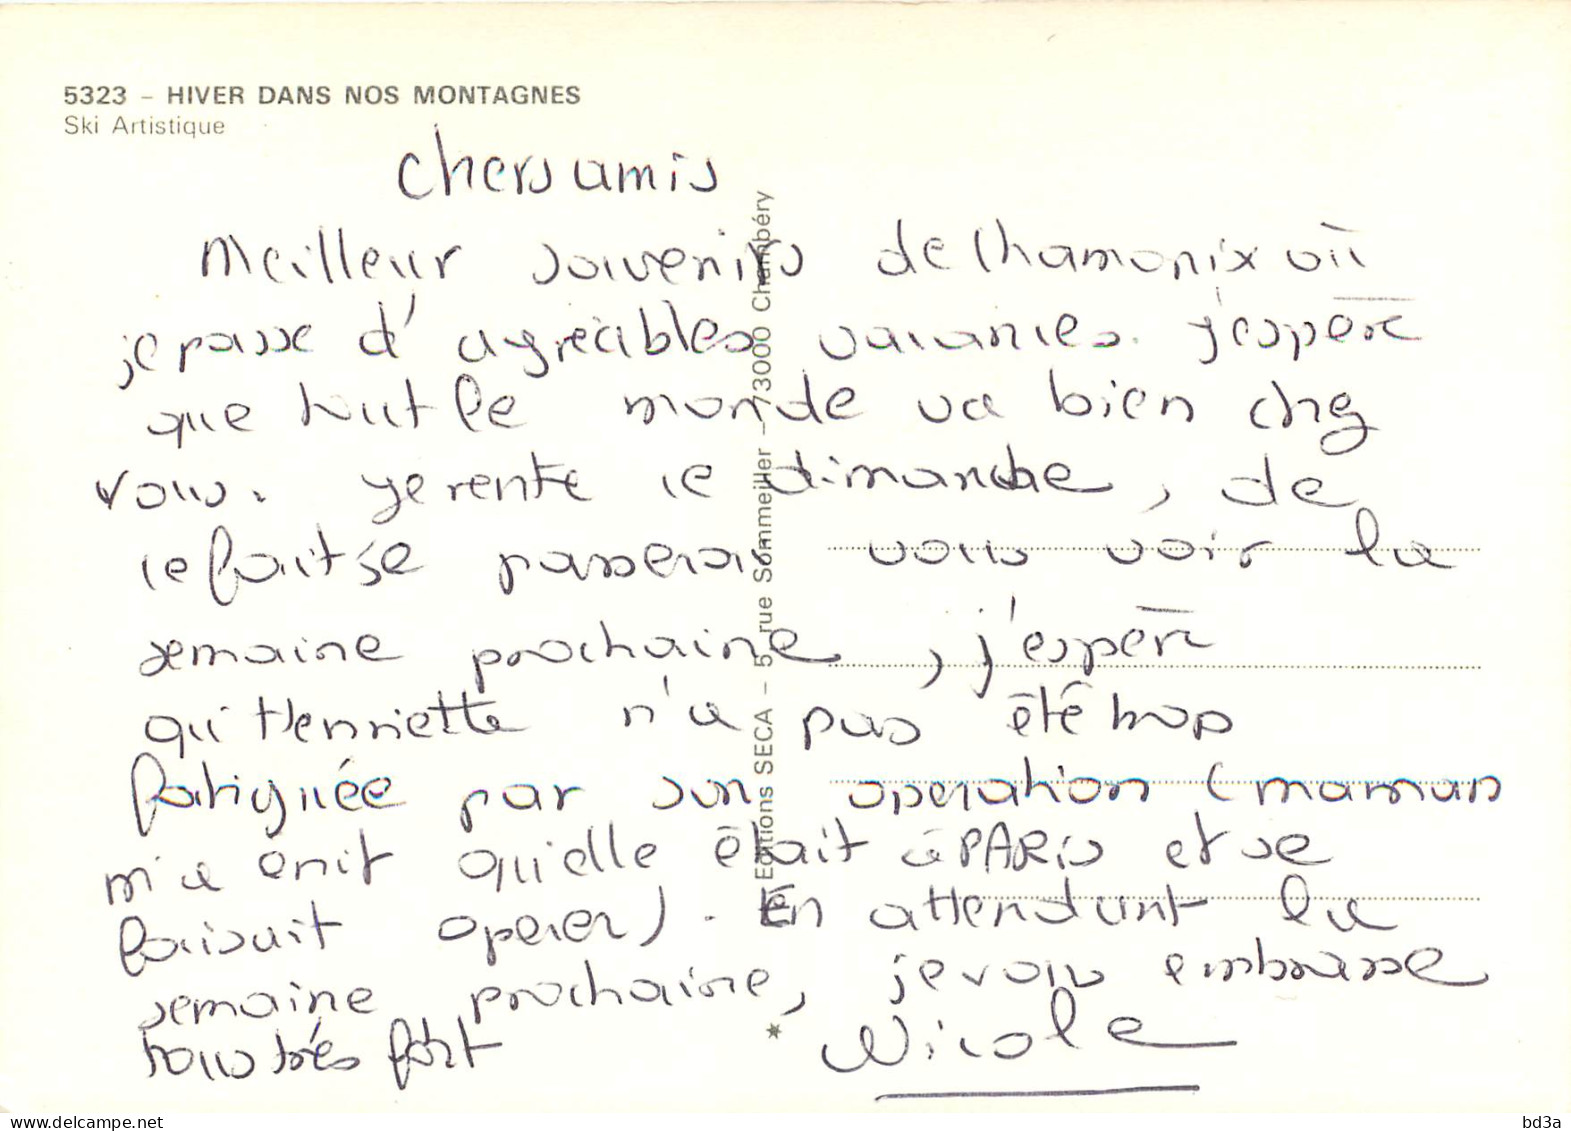 5323 - HIVER DANS NOS MONTAGNES
Ski Artistique
Chers amis
Meilleur souvenirs de Chamonix où
je passe d'agréables vacances. J'espère
que tout le monde va bien chez
vous. Je rentre ce dimanche, de
ce fait je passerai vous voir la
semaine prochaine, j'espère
qu'Henriette n'a pas été trop
fatiguée par son operation (maman
m'a ecrit qu'elle était à PARIS et se
faisait operer). En attendant la
semaine prochaine, je vous embrasse
tous très fort
Nicole
Editions SECA - 5, rue Sommeiller - 73000 Chambéry
*
www.delcampe.net
bd3a